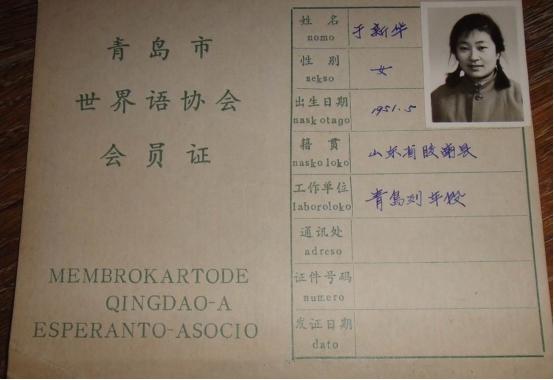 青岛市
世界语协会
会员证
MEMBROKARTO DE
QINGDAO-A
ESPERANTO-ASOCIO
姓名 于新华
nomo
性别 女
sekso
出生日期 1951.5
naskotago
籍贯 山东省胶南县
naskoloko
工作单位 青岛列车段
laboroloko
通讯处
adreso
证件号码
numero
发证日期
dato